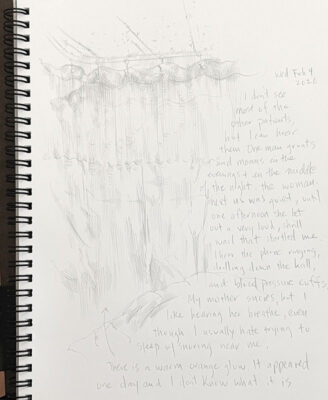 Wed Feb 4
2026
I don't see
most of the
other patients,
but I can hear
them. One man grunts
and moans in the
evenings + in the middle
of the night. the woman
next us was quiet, until
one afternoon she let
out a very loud, shrill
wail that startled me.
I hear the phone ringing,
chatting down the hall,
and blood pressure cuffs.
My mother snores, but I
like hearing her breathe, even
though I usually hate trying to
sleep w/ snoring near me.
There is a warm orange glow. It appeared
one day and I don't know what it is